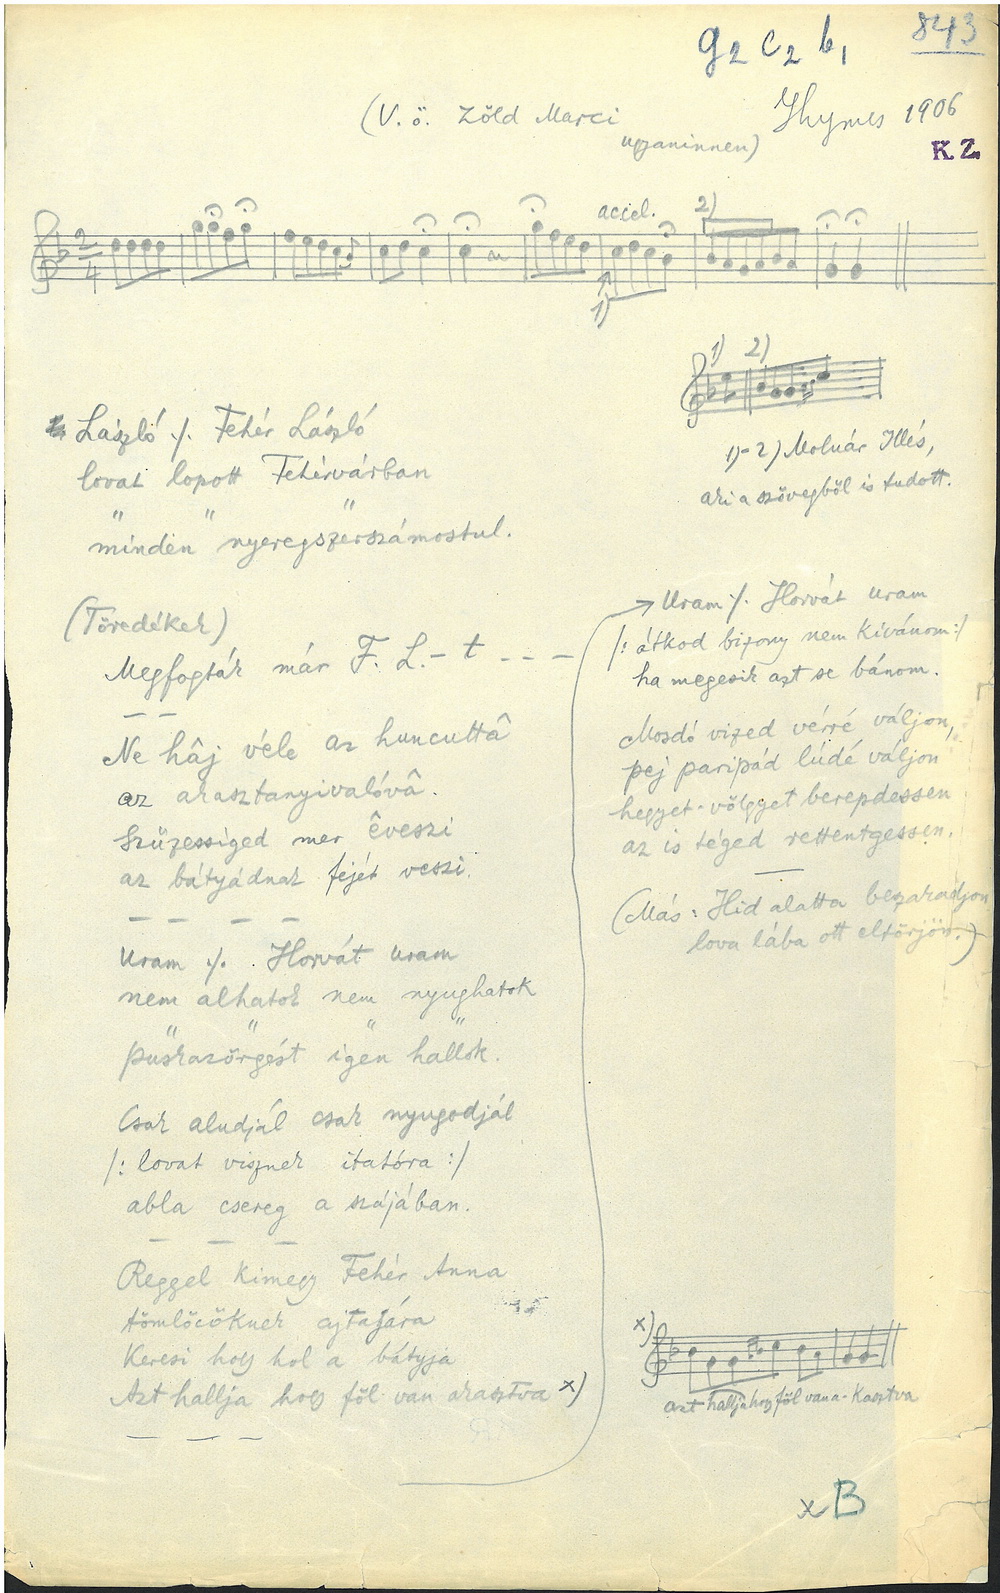 843
g2 c2 b1
(V. ö. Zöld Marci
ugyaninnen)
Ghymes 1906
K. Z.
accel.
2)
2/4
1)
1) 2)
1)-2) Molnár Illés,
aki a szövegből is tudott.
László ·/. Fehér László
lovat lopott Fehérvárban
" " "
minden nyeregszerszámostul.
(Töredékek)
Megfogták már F. L.- t - - -
Ne hâj véle az huncuttâ
az akasztanyivalóvâ.
Szüzességed mer êveszi
az bátyádnak fejét veszi.
Uram ·/. Horvát uram
nem álhatok nem nyughatok
" " " "
puskazörgést igen hallok.
Csak aludjál csak nyugodjál
/: lovat visznek itatóra :/
abla csereg a szájában.
Reggel kimegy Fehér Anna
tömlöcöknek ajtajára
Keresi hogy hol a bátyja
Azt hallja hogy föl van akasztva x)
Uram ·/. Horvát uram
/: átkod bizony nem kivánom :/
ha megesik azt se bánom.
Mosdó vized vérré váljon,
pej paripád lúdé váljon
hegyet-völgyet berepdessen
az is téged rettentgessen.
(Más: Hid alatta beszakadjon
lova lába ott eltörjön.)
x)
azt hallja hogy föl van a-kasztva
x B